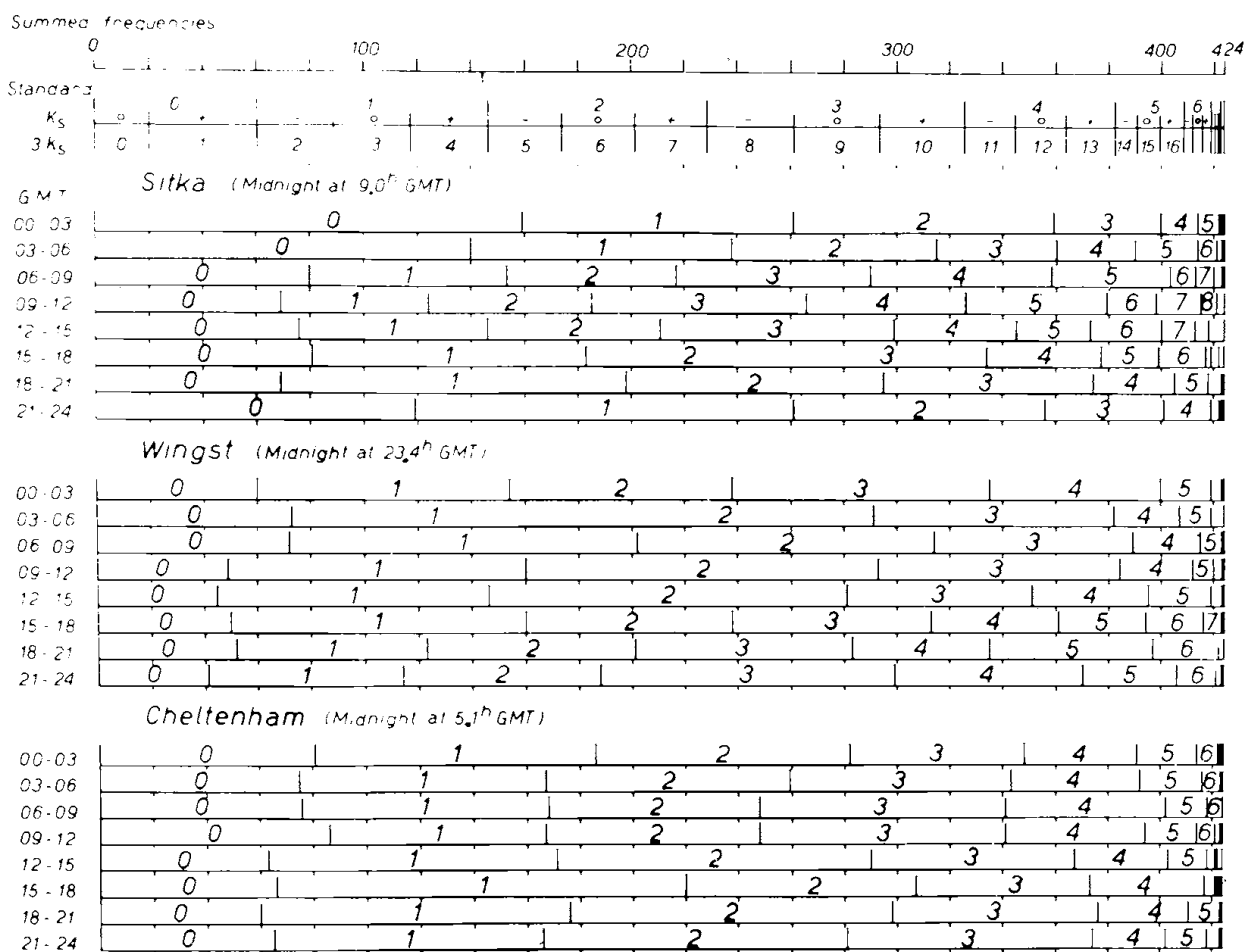 Summed frequencies
0 100 200 300 400 424
Standard
0 1 2 3 4 5 6
Ks o + - o + - o + - o + - o + - o + - o +
3 Ks 0 1 2 3 4 5 6 7 8 9 10 11 12 13 14 15 16
Sitka (Midnight at 9.0h GMT)
GMT
00-03 0 1 2 3 4 5
03-06 0 1 2 3 4 5 6
06-09 0 1 2 3 4 5 6 7
09-12 0 1 2 3 4 5 6 7 8
12-15 0 1 2 3 4 5 6 7
15-18 0 1 2 3 4 5 6
18-21 0 1 2 3 4 5
21-24 0 1 2 3 4
Wingst (Midnight at 23.4h GMT)
00-03 0 1 2 3 4 5
03-06 0 1 2 3 4 5
06-09 0 1 2 3 4 5
09-12 0 1 2 3 4 5
12-15 0 1 2 3 4 5
15-18 0 1 2 3 4 5 6 7
18-21 0 1 2 3 4 5 6
21-24 0 1 2 3 4 5 6
Cheltenham (Midnight at 5.1h GMT)
00-03 0 1 2 3 4 5 6
03-06 0 1 2 3 4 5 6
06-09 0 1 2 3 4 5 6
09-12 0 1 2 3 4 5 6
12-15 0 1 2 3 4 5
15-18 0 1 2 3 4
18-21 0 1 2 3 4 5
21-24 0 1 2 3 4 5